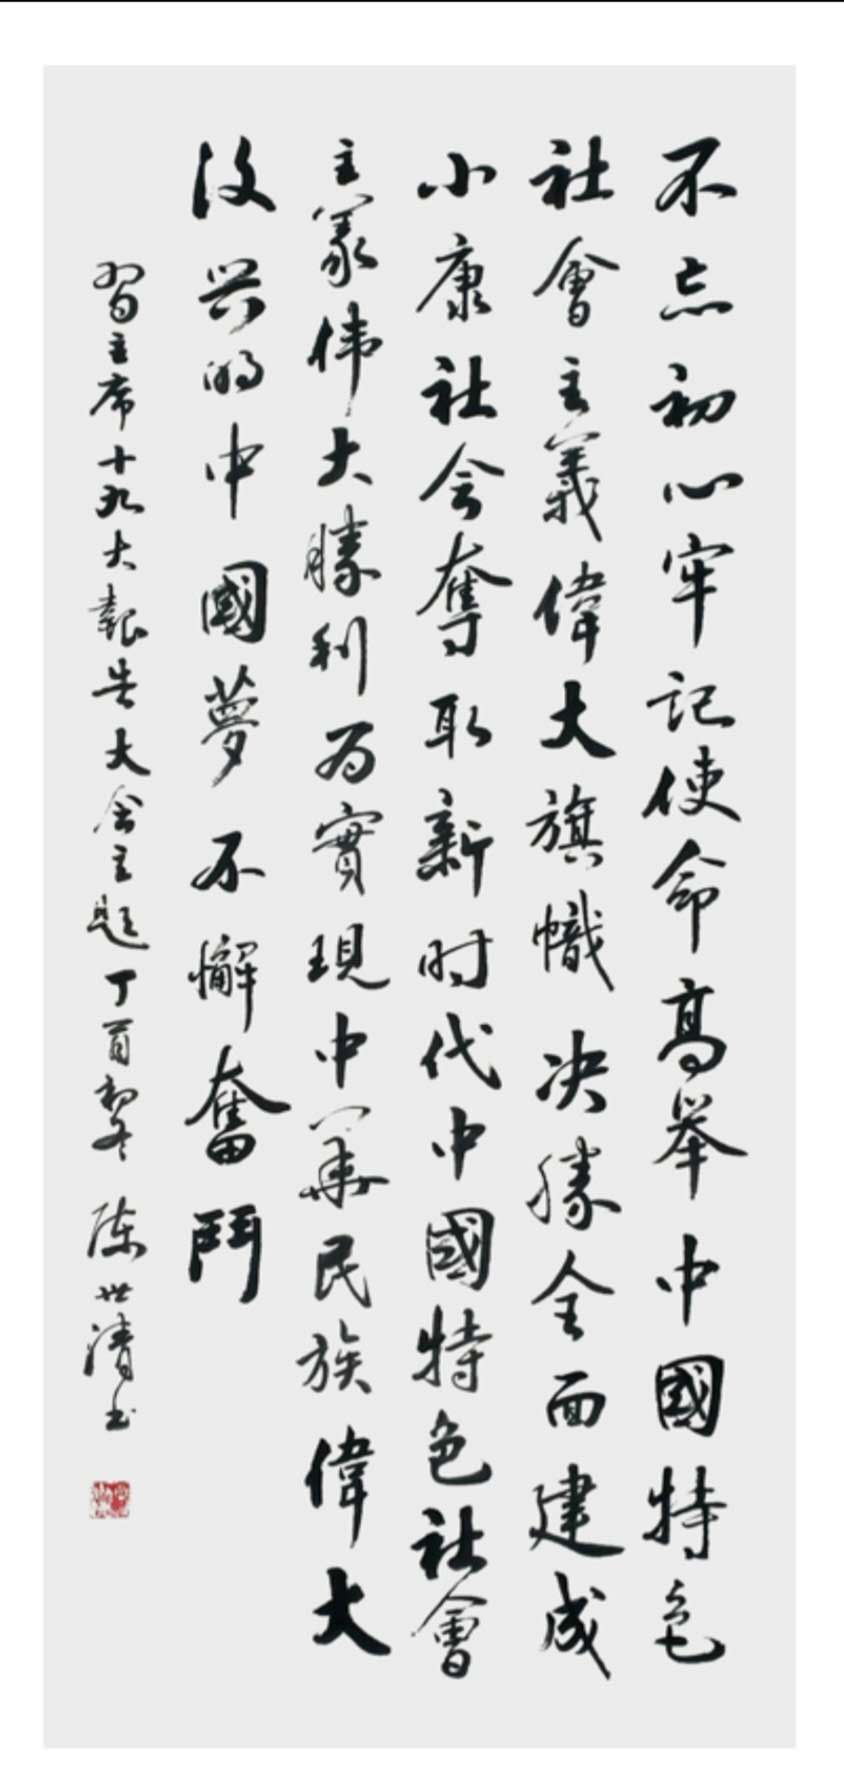 不忘初心牢记使命高举中國特色
社會主義偉大旗幟决勝全面建成
小康社会奪取新时代中國特色社會
主義伟大勝利为實現中华民族偉大
復兴的中國夢不懈奮鬥
習主席十九大報告大会主题丁酉初冬陈世清书